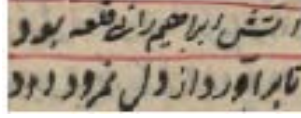 آتش ابراهیم را نی قلعه بود
تا برآورد از دل نمرود دود